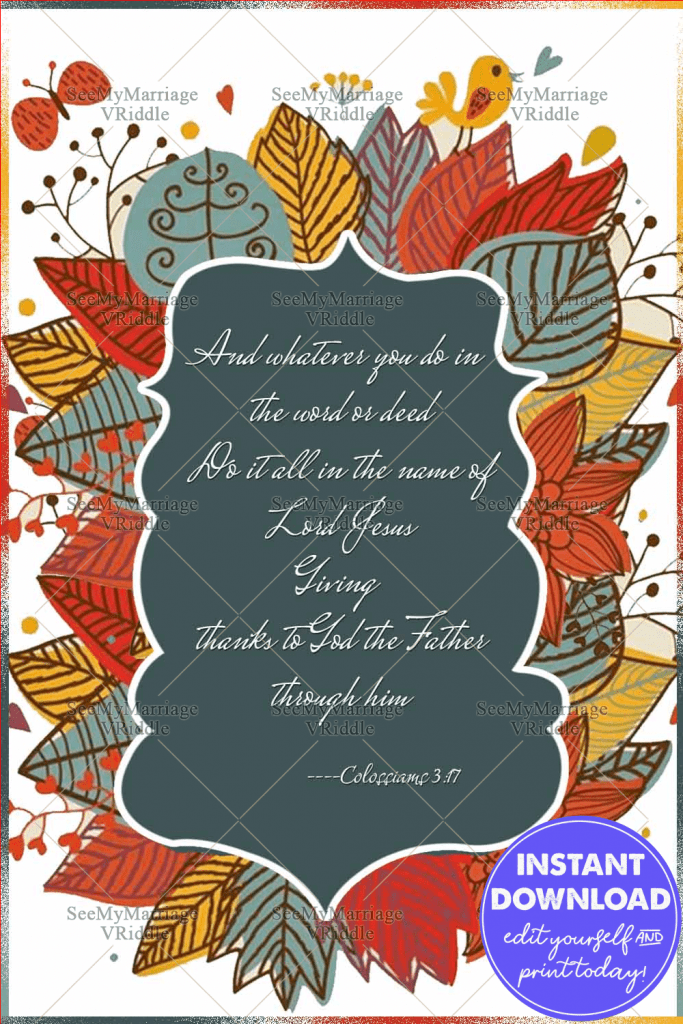 SeeMyMarriage SeeMyMarriage SeeMyMarriage
VRiddle VRiddle VRiddle
SeeMyMarriage SeeMyMarriage SeeMyMarriage
VRiddle VRiddle VRiddle
And whatever you do in
the word or deed
Do it all in the name of
SeeMyMarriage SeeMyMarriage SeeMyMarriage
VRiddle VRiddle VRiddle
Lord Jesus
Giving
thanks to God the Father
through him
SeeMyMarriage SeeMyMarriage SeeMyMarriage
VRiddle VRiddle VRiddle
----Colossiams 3:17
INSTANT
DOWNLOAD
edit yourself AND
print today!
SeeMyMarriage SeeMyMarriage
VRiddle VRiddle